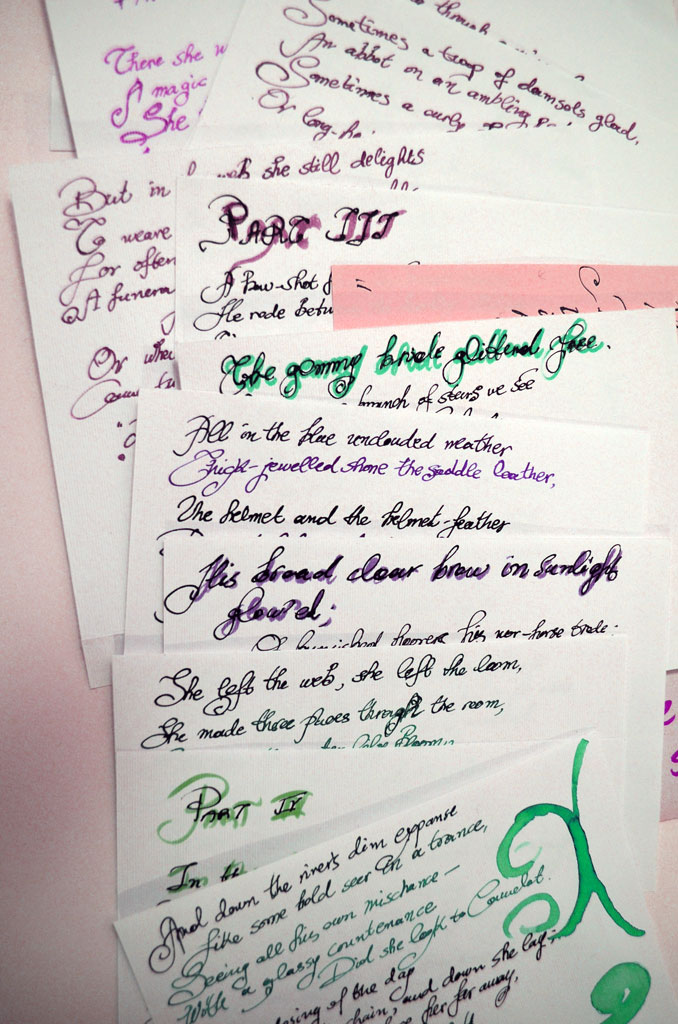 through
Sometimes a troop of damsels glad,
An abbot on an ambling
Sometimes a curly
Or long-ha
There she w
A magic
She
But in web she still delights
To weave
For often
A funera
Or when
Part III
A Bow-shot f
He rode betw
The gemmy bridle glitter'd free.
branch of stars we see
All in the blue unclouded weather
Thick-jewelled shone the saddle leather,
The helmet and the helmet-feather
His broad clear brow in sunlight
glow'd;
On burnished hooves his war-horse trode:
She left the web, she left the loom,
She made three paces through the room,
Part IV
In
And down the river's dim expanse
Like some bold seer in a trance,
Seeing all his own mischance—
With a glassy countenance
Did she look to Camelot.
losing of the day
chain, and down she lay;
her far away,